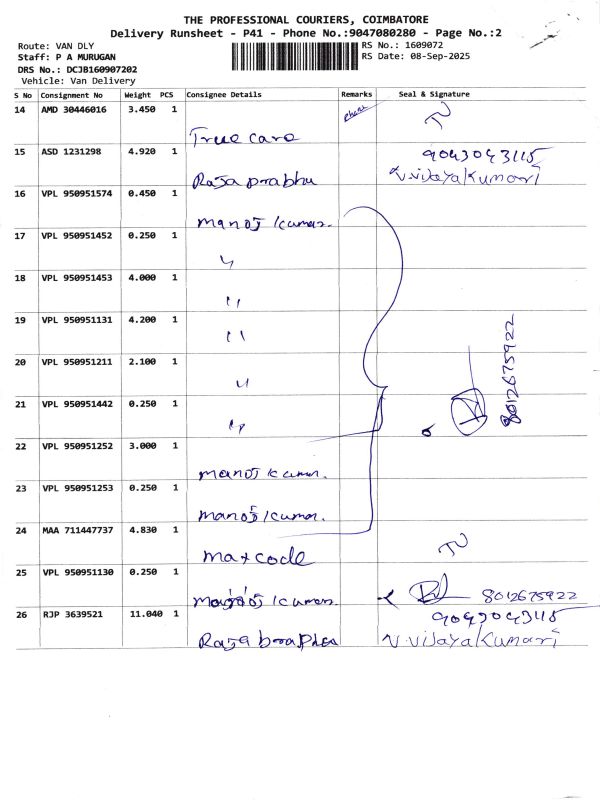 THE PROFESSIONAL COURIERS, COIMBATORE
Delivery Runsheet - P41 - Phone No.:9047080280 - Page No.:2
Route: VAN DLY
RS No.: 1609072
Staff: P A MURUGAN
RS Date: 08-Sep-2025
DRS No.: DCJB160907202
Vehicle: Van Delivery
S No Consignment No Weight PCS Consignee Details Remarks Seal & Signature
14 AMD 30446016 3.450 1
True care
15 ASD 1231298 4.920 1 9043043115
Rajaprabhu V.vijayakumari
16 VPL 950951574 0.450 1
manoj kumar.
17 VPL 950951452 0.250 1
"
18 VPL 950951453 4.000 1
"
19 VPL 950951131 4.200 1
"
20 VPL 950951211 2.100 1
"
8012675922
21 VPL 950951442 0.250 1
"
22 VPL 950951252 3.000 1
manoj kumar.
23 VPL 950951253 0.250 1
manoj kumar.
24 MAA 711447737 4.830 1
maxcode
25 VPL 950951130 0.250 1
manoj kumar. 8012675922
26 RJP 3639521 11.040 1 9043043115
V.vijayakumari